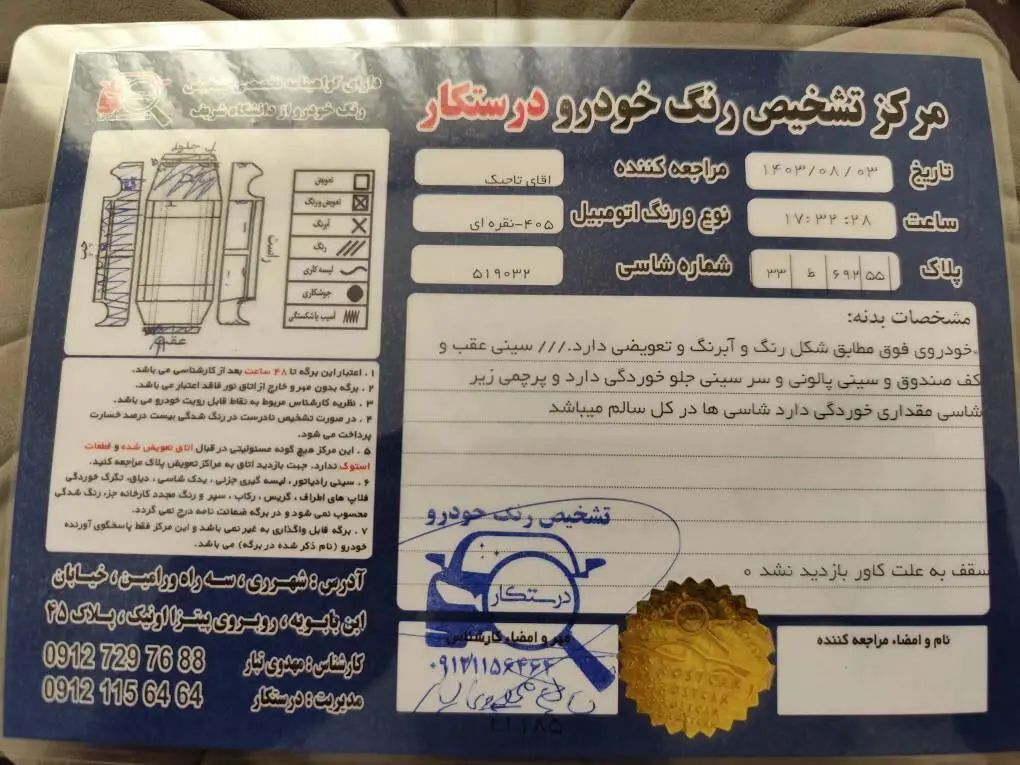 مرکز تشخیص رنگ خودرو درستکار
دارای گواهینامه تخصصی تشخیص
رنگ خودرو از دانشگاه شریف
تاریخ ۱۴۰۳/۰۸/۰۳
مراجعه کننده اقای تاجیک
ساعت ۱۷:۳۲:۲۸
نوع و رنگ اتومبیل ۴۰۵-نقره ای
پلاک ۵۵ ۶۹۲ ط ۳۳
شماره شاسی ۵۱۹۰۳۲
جلو
چپ
راست
عقب
تعویض
تعویض و رنگ
آبرنگ
رنگ
لیسه کاری
جوشکاری
آسیب یا شکستگی
مشخصات بدنه:
خودروی فوق مطابق شکل رنگ و آبرنگ و تعویضی دارد./// سینی عقب و
کف صندوق و سینی پالونی و سر سینی جلو خوردگی دارد و پرچمی زیر
شاسی مقداری خوردگی دارد شاسی ها در کل سالم میباشد
سقف به علت کاور بازدید نشد ه
۱ . اعتبار این برگه تا ۴۸ ساعت بعد از کارشناسی می باشد.
۲ . برگه بدون مهر و خارج از اتاق نور فاقد اعتبار می باشد.
۳ . نظریه کارشناس مربوط به نقاط قابل رویت خودرو می باشد.
۴ . در صورت تشخیص نادرست در رنگ شدگی بیست درصد خسارت
پرداخت می شود.
۵ . این مرکز هیچ گونه مسئولیتی در قبال اتاق تعویض شده و قطعات
استوک ندارد. جهت بازدید اتاق به مراکز تعویض پلاک مراجعه کنید.
۶ . سینی رادیاتور ، لیسه گیری جزئی ، یدک شاسی ، دیاق، تگرگ خوردگی
فلاپ های اطراف ، گریس ، رکاب ، سپر و رنگ مجدد کارخانه جز، رنگ شدگی
محسوب نمی شود و در برگه ضمانت نامه درج نمی گردد.
۷ . برگه قابل واگذاری به غیر نمی باشد و این مرکز فقط پاسخگوی آورنده
خودرو (نام ذکر شده در برگه) می باشد.
آدرس : شهرری ، سه راه ورامین ، خیابان
ابن بابویه ، روبروی پیتزا اونیک ، پلاک ۴۵
کارشناس : مهدوی تبار 0912 729 76 88
مدیریت : درستکار 0912 115 64 64
تشخیص رنگ خودرو
درستکار
مهر و امضاء کارشناس
۰۹۱۲۱۱۵۶۴۶۴
نام و امضاء مراجعه کننده
11185